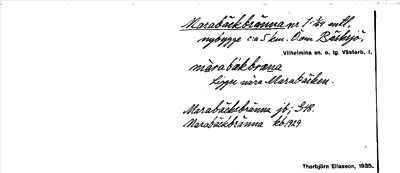 Marabäckbränna nr 1: 7/24 mtl,
nybygge c:a 5 km. O om Bäsksjö,
Vilhelmina sn. o. tg. Västerb. l.
màrabäkbrœna
Ligger nära Marabäcken.
Marabäcksbränna jb;
Marabäckbränna kb 1929
Thorbjörn Eliasson, 1935.